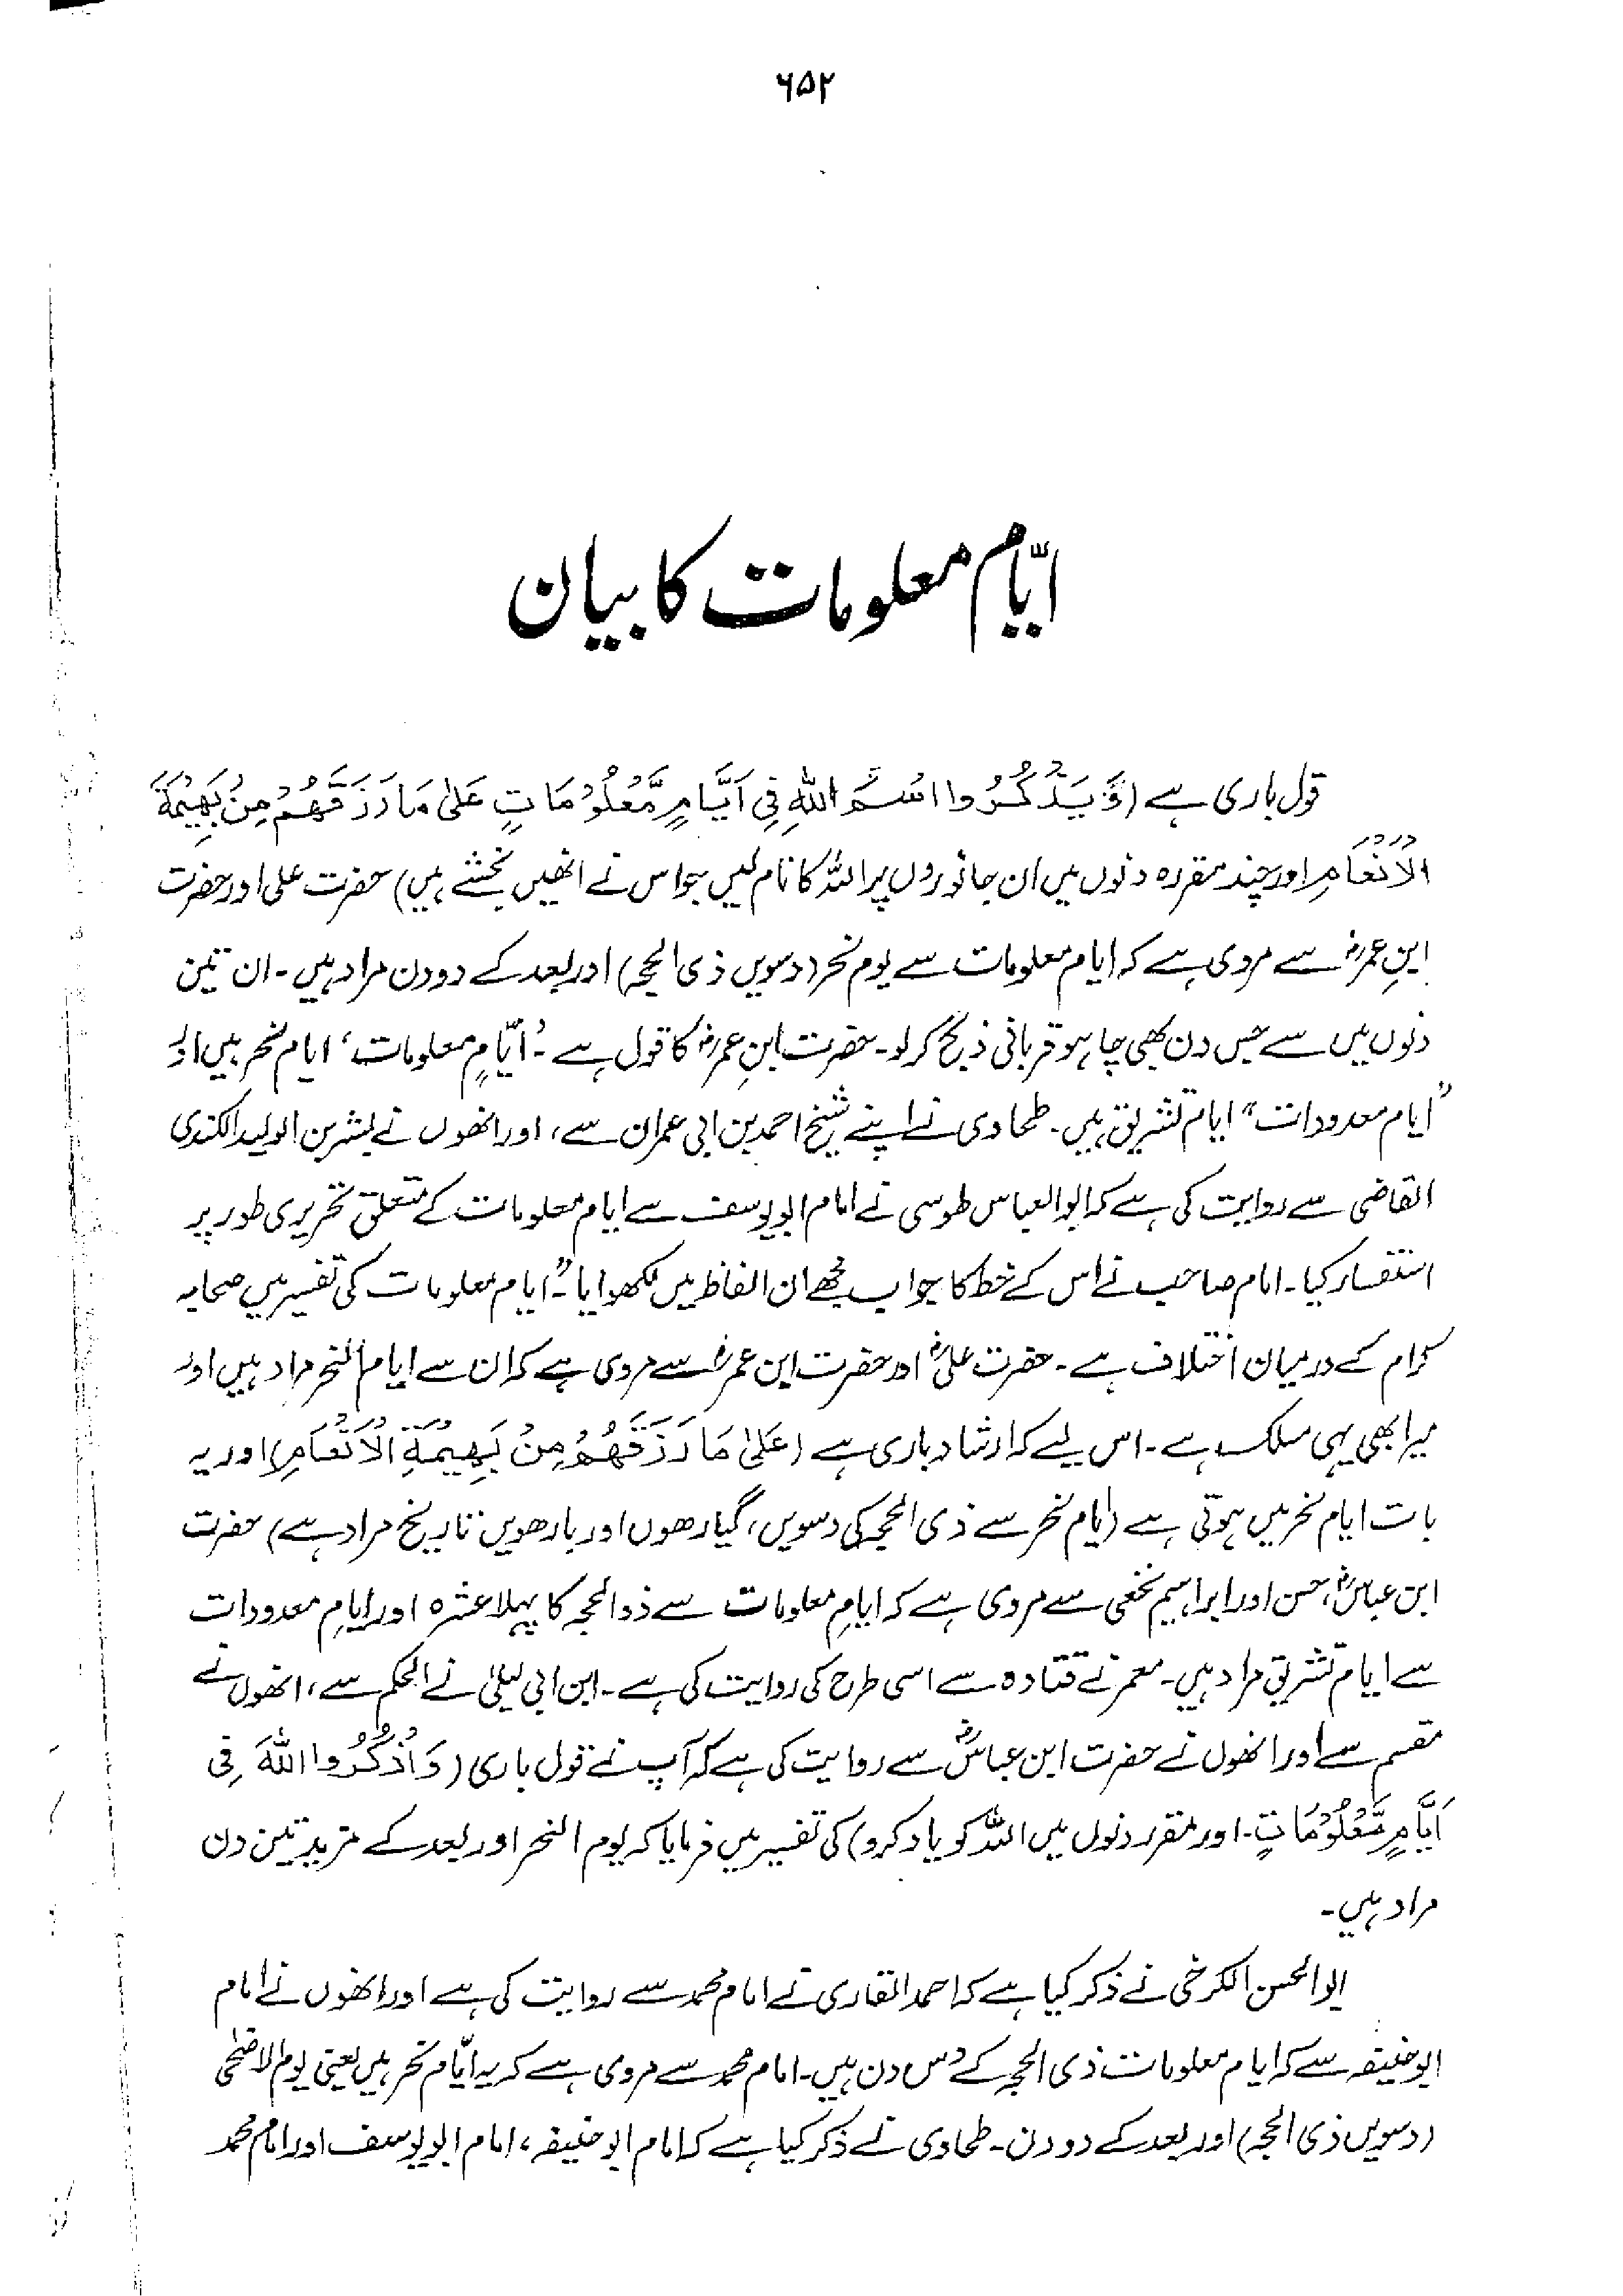 ۶۵۲
ایّام معلومات کا بیان
قول باری ہے (وَيَذْكُرُوا اسْمَ اللهِ فِي اَيَّامٍ مَّعْلُوْمَاتٍ عَلىٰ مَا رَزَقَهُمْ مِنْ بَهِيْمَةِ
الْاَنْعَامِ اور چند مقررہ دنوں میں ان جانوروں پر اللہ کا نام لیں جو اس نے انھیں بخشے ہیں) حضرت علی اور حضرت
ابنِ عمرؓ سے مروی ہے کہ ایام معلومات سے یوم نحر (دسویں ذی الحجہ) اور بعد کے دو دن مراد ہیں۔ ان تین
دنوں میں سے جس دن بھی چاہو قربانی ذبح کر لو۔ حضرت ابنِ عمرؓ کا قول ہے۔ "ایّامٍ معلومات" ایام نحر ہیں اور
"ایام معدودات" ایام تشریق ہیں۔ طحاوی نے اپنے شیخ احمد بن ابی عمران سے، اور انھوں نے بشر بن الولید الکندی
القاضی سے روایت کی ہے کہ ابو العباس طوسی نے امام ابو یوسف سے ایام معلومات کے متعلق تحریری طور پر
استفسار کیا۔ امام صاحب نے اس کے خط کا جواب مجھے ان الفاظ میں لکھوایا "۔ ایام معلومات کی تفسیر میں صحابہ
کرام کے درمیان اختلاف ہے۔ حضرت علیؓ اور حضرت ابن عمرؓ سے مروی ہے کہ ان سے ایام النحر مراد ہیں اور
میرا بھی یہی مسلک ہے۔ اس لیے کہ ارشاد باری ہے (عَلىٰ مَا رَزَقَهُمْ مِنْ بَهِيْمَةِ الْاَنْعَامِ) اور یہ
بات ایام نحر میں ہوتی ہے (ایام نحر سے ذی الحجہ کی دسویں، گیارھوں اور بارھویں تاریخ مراد ہے) حضرت
ابن عباسؓ، حسن اور ابراہیم نخعی سے مروی ہے کہ ایامِ معلومات سے ذوالحجہ کا پہلا عشرہ اور ایامِ معدودات
سے ایام تشریق مراد ہیں۔ معمر نے قتادہ سے اسی طرح کی روایت کی ہے۔ ابن ابی لیلیٰ نے الحکم سے، انھوں نے
مقسم سے اور انھوں نے حضرت ابن عباسؓ سے روایت کی ہے کہ آپ نے قول باری (وَاذْكُرُوا اللهَ فِي
اَيَّامٍ مَّعْلُوْمَاتٍ۔ اور مقرر دنوں میں اللہ کو یاد کرو) کی تفسیر میں فرمایا کہ یوم النحر اور بعد کے مزید تین دن
مراد ہیں۔
ابو الحسن الکرخی نے ذکر کیا ہے کہ احمد القاری نے امام محمد سے روایت کی ہے اور انھوں نے امام
ابو حنیفہ سے کہ ایام معلومات ذی الحجہ کے دس دن ہیں۔ امام محمد سے مروی ہے کہ یہ ایّام نحر ہیں یعنی یوم الاضحی
(دسویں ذی الحجہ) اور بعد کے دو دن۔ طحاوی نے ذکر کیا ہے کہ امام ابو حنیفہ، امام ابو یوسف اور امام محمد